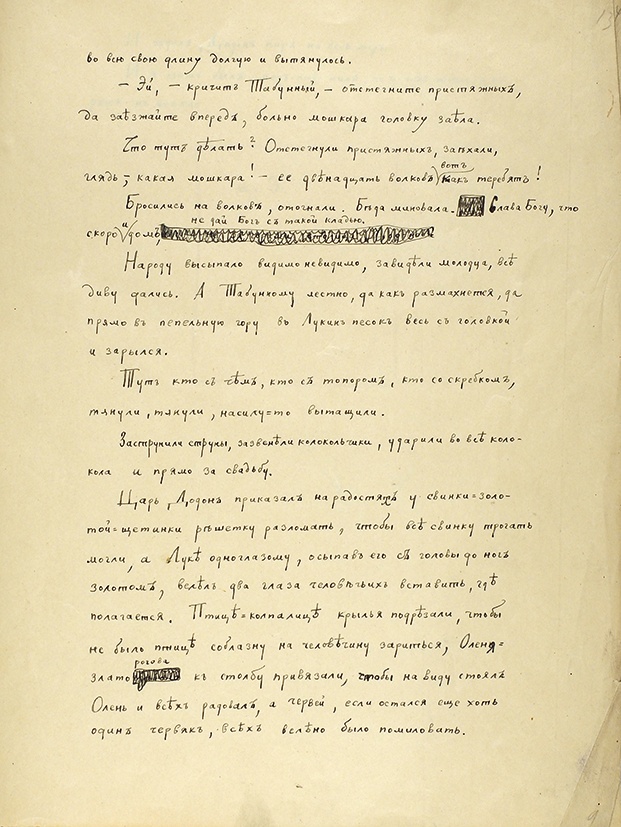 134
во всю свою длину долгую и вытянулось.
— Эй, — кричитъ Табунный, — отстегните пристяжныхъ,
да заѣзжайте впередъ, больно мошкара головку заѣла.
Что тутъ дѣлать? Отстегнули пристяжныхъ, заѣхали,
вотъ
глядь, — какая мошкара! — ее двѣнадцать волковъ какъ теребятъ!
Бросились на волковъ, отогнали. Бѣда миновала. Слава Богу, что
не дай Богъ съ такой кладью.
скоро и домъ,
Народу высыпало видимо невидимо, завидѣли молодца, всѣ
диву дались. А Табунному лестно, да какъ размахнется, да
прямо въ пепельную гору въ Лукинъ песокъ весь съ головкой
и зарылся.
Тутъ кто съ чѣмъ, кто съ топоромъ, кто со скребкомъ,
тянули, тянули, насилу=то вытащили.
Заструнили струны, зазвенѣли колокольчики, ударили во всѣ коло-
кола и прямо за свадьбу.
Царь Додонъ приказалъ на радостяхъ у свинки=золо-
той=щетинки рѣшетку разломать, чтобы всѣ свинку трогать
могли, а Лукѣ одноглазому, осыпавъ его съ головы до ногъ
золотомъ, велѣлъ два глаза человѣчьихъ вставить, гдѣ
полагается. Птицѣ=колпалицѣ крылья подрѣзали, чтобы
не было птицѣ соблазну на человѣчину зариться, Оленя=
рогова
злато къ столбу привязали, чтобы на виду стоялъ
Олень и всѣхъ радовалъ, а червей, если остался еще хоть
одинъ червякъ, всѣхъ велѣно было помиловать.